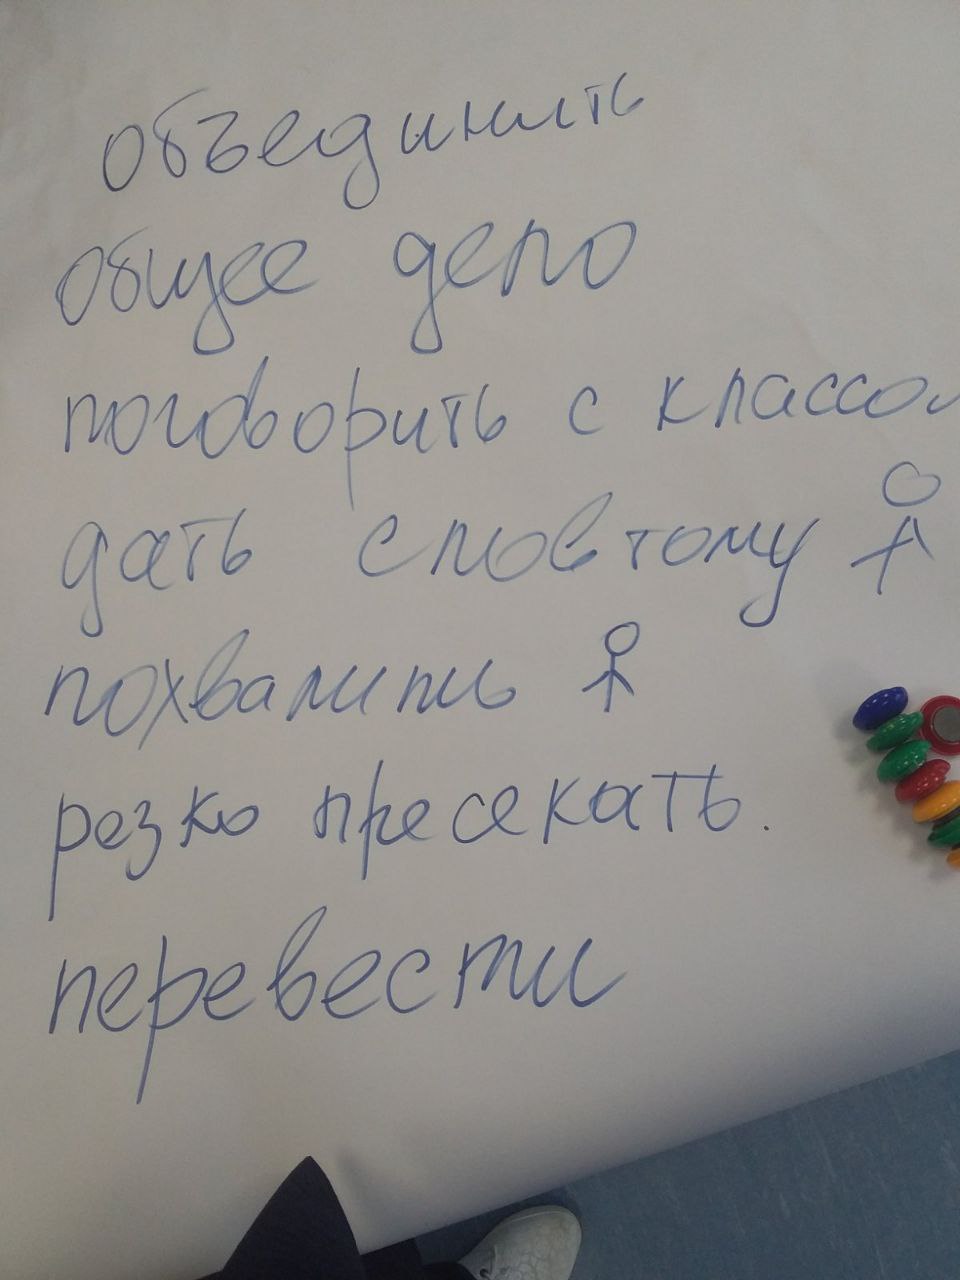 объединить
общее дело
поговорить с классом
дать слов тому
похвалить
резко пресекать.
перевести